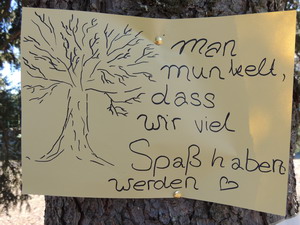 man
munkelt,
dass
wir viel
Spaß haben
werden ♡